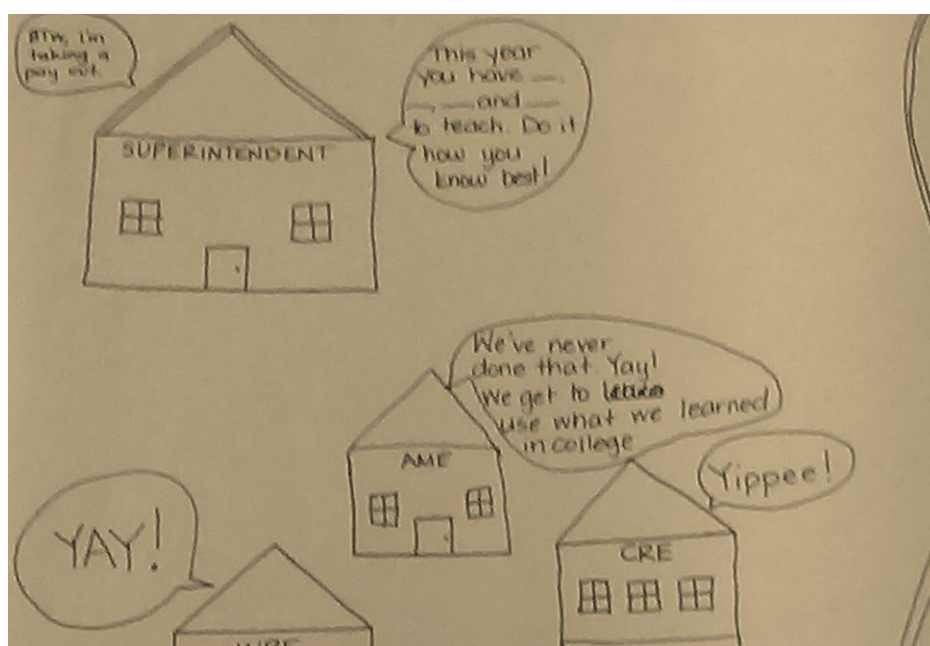 BTW, I'm
taking a
pay cut.
This year
you have __,
__, __, and __
to teach. Do it
how you
know best!
SUPERINTENDENT
We've never
done that. Yay!
We get to
use what we learned
in college
AME
Yippee!
CRE
YAY!